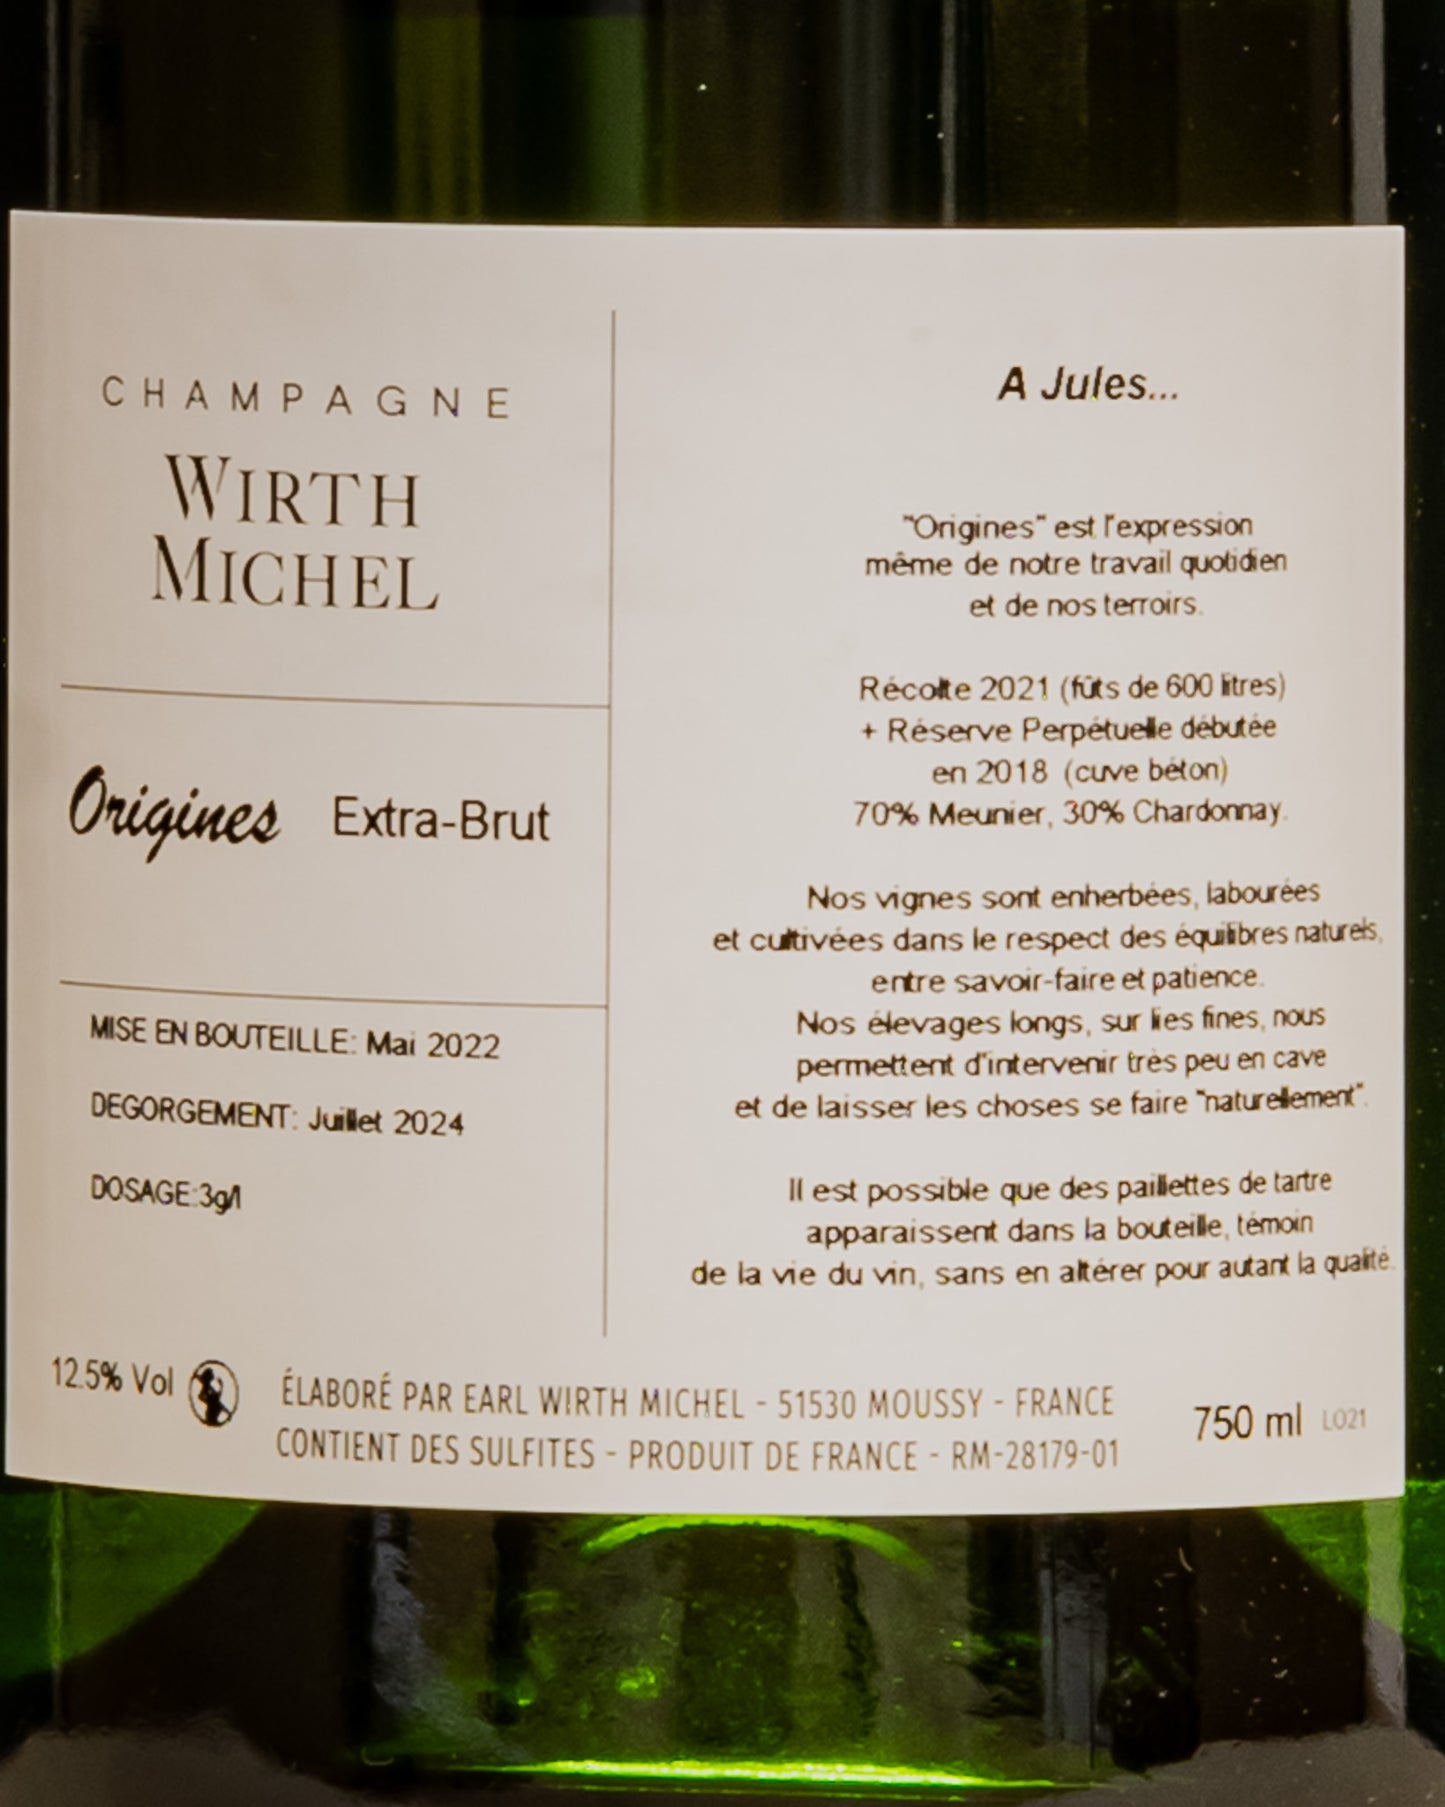 CHAMPAGNE
WIRTH
MICHEL
Origines Extra-Brut
MISE EN BOUTEILLE: Mai 2022
DEGORGEMENT: Juillet 2024
DOSAGE:3g/l
A Jules...
"Origines" est l'expression
même de notre travail quotidien
et de nos terroirs.
Récolte 2021 (fûts de 600 litres)
+ Réserve Perpétuelle débutée
en 2018 (cuve béton)
70% Meunier, 30% Chardonnay.
Nos vignes sont enherbées, labourées
et cultivées dans le respect des équilibres naturels,
entre savoir-faire et patience.
Nos élevages longs, sur lies fines, nous
permettent d'intervenir très peu en cave
et de laisser les choses se faire "naturellement".
Il est possible que des paillettes de tartre
apparaissent dans la bouteille, témoin
de la vie du vin, sans en altérer pour autant la qualité.
12.5% Vol
ÉLABORÉ PAR EARL WIRTH MICHEL - 51530 MOUSSY - FRANCE
CONTIENT DES SULFITES - PRODUIT DE FRANCE - RM-28179-01
750 ml LO21